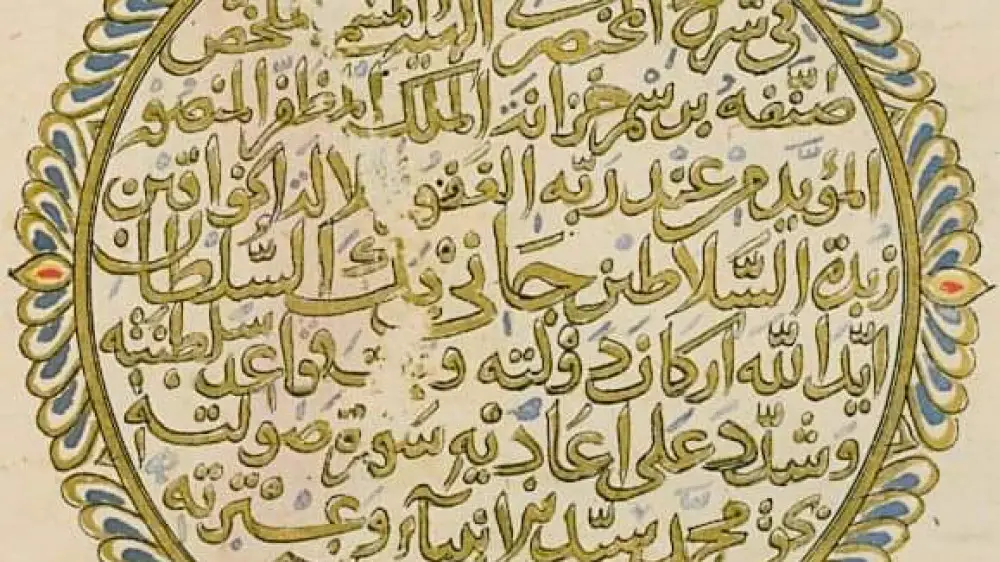 في شرح المختصر المسمى بملخص
صنفه برسم خزانة الملك المظفر المنصور
المؤيد من عند ربه الغفور
زبدة السلاطين جاني بك السلطان
ايد الله اركان دولته و قواعد سلطنته
وشدد على اعاديه سورة صولته
محمد سيد الانبياء وعترته